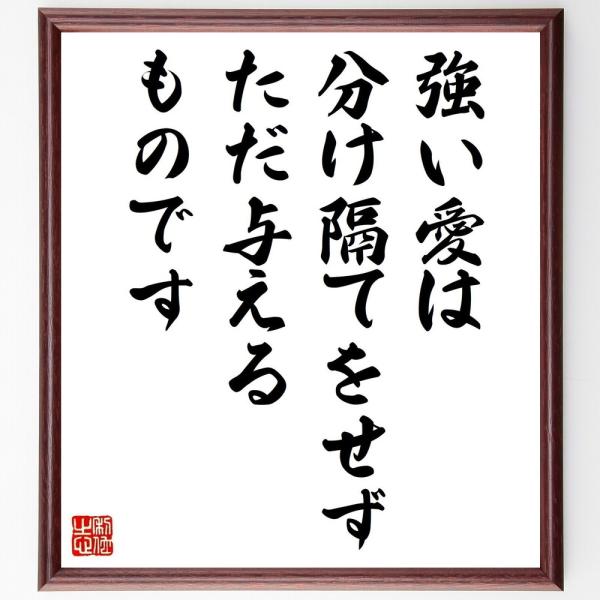 強い愛は
分け隔てをせず
ただ与える
ものです